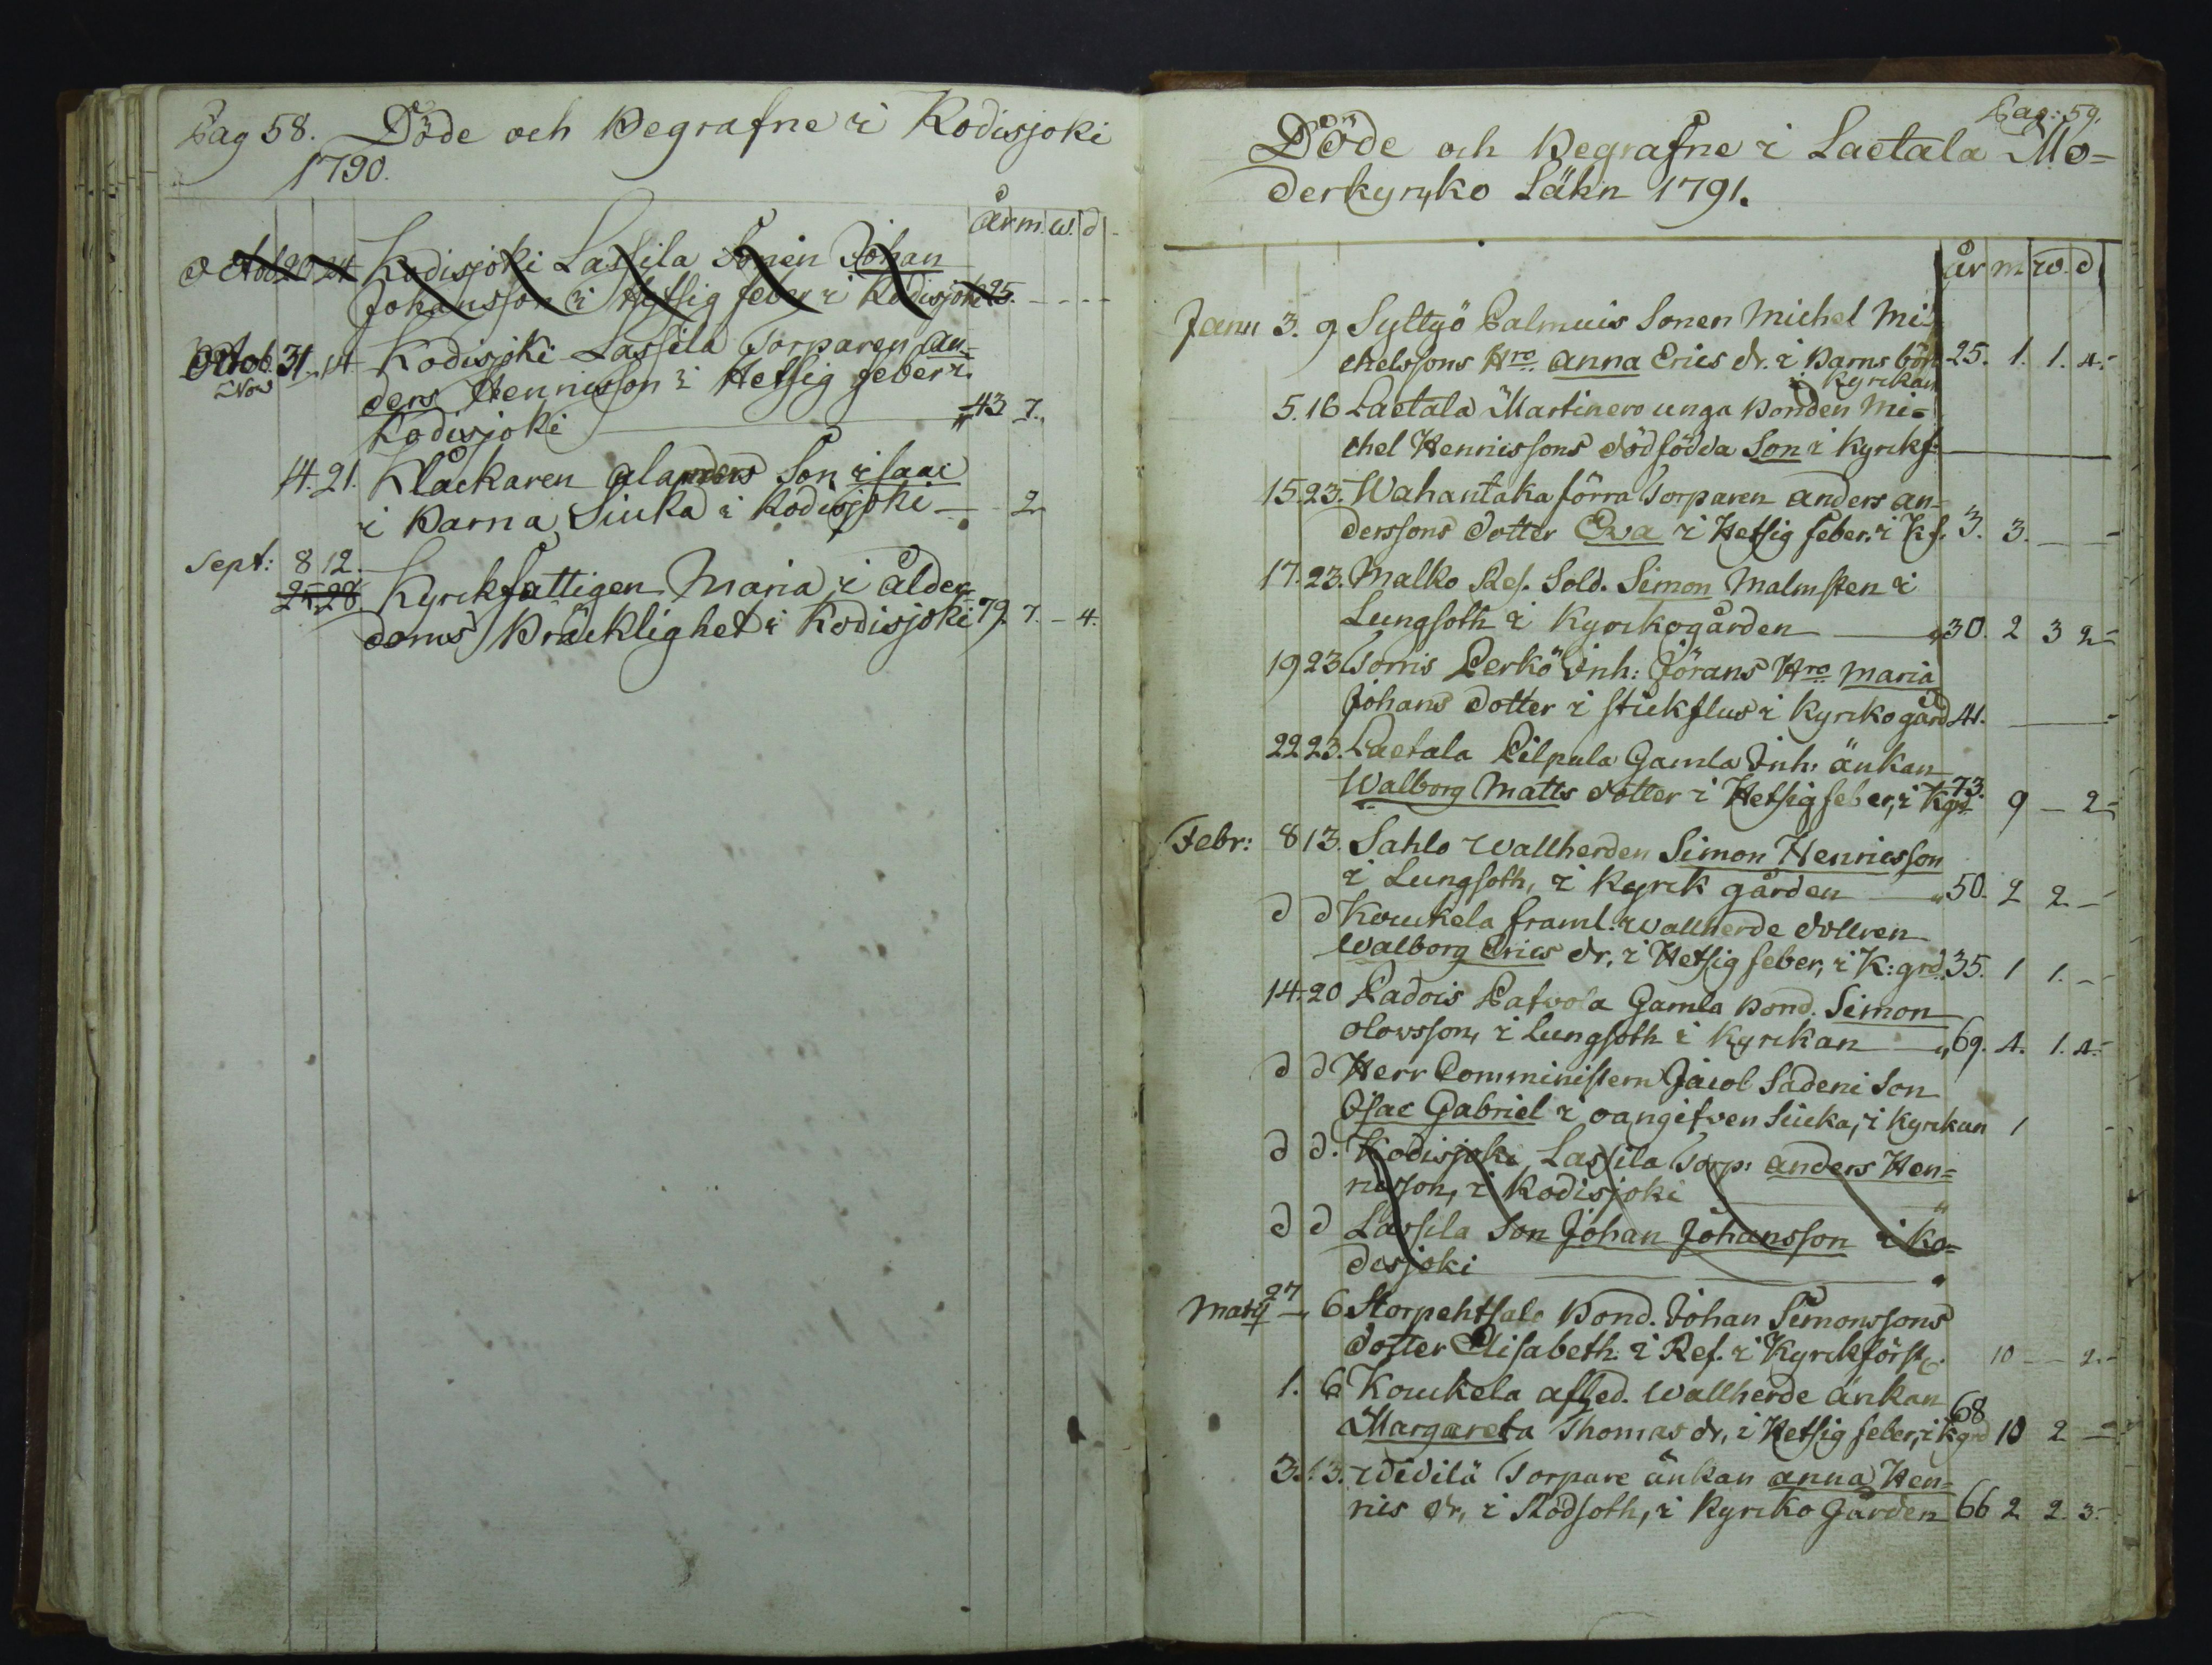 Pag 58. Döde och Begrafne i Kodisjoki
1790.
år m. w. d
Octob 20 24 Kodisjoki Lassila Sonen Johan
Johansson i Hetsig feber i Kodisjoki 25. - - -
Octob. 31. 14 Kodisjoki Lassila Torparen An-
Nov ders Hennrisson i Hetsig feber i
Kodisjoki 43 7.
14. 21. Klåckaren Alanders Son isaac
i Barna Siuka i Kodisjoki - 2
Sept: 8 12.
25. 28 Kyrckfattigen Maria i ålder-
doms Bräcklighet i Kodisjoki 79. 7. - 4.
Pag: 59.
Döde och Begrafne i Laetala Mo=
derkyrko Läkn 1791.
år m w. d
Janu 3. 9 Syttyö Palmuis Sonen Michel Mi-
chelssons Hro Anna Erics dr. i Barns börd 25. 1. 1. 4.
i Kyrckan
5. 16 Laetala Martinero unga Bonden Mi=
chel Henricssons dödfödda Son i Kyrckf.
15. 23. Wahantaka förra Torparen Anders An-
derssons dotter Eva i Hetsig feber. i Kf. 3. 3. - -
17. 23. Malko Res. Sold. Simon Malmsten i
Lungsoth i Kyrckogården 30. 2 3 2
19 23 Torris Perkö Inh: Jörans Hro Maria
Johans dotter i stickflus i Kyrckogård 41.
22 23. Laetala Pilpula Gamla Inh: änkan
Walborg Matts dotter i Hetsig feber, i Kgrd 73. 9 - 2
Febr: 8 13. Sahlo Wallherden Simon Henricsson
i Lungsoth, i Kyrck gården 50. 2 2 -
d d Kouckela framl. Wallherde dottren
Walborg Erics dr. i Hetsig feber, i K: grd. 35. 1 1. -
14. 20 Padois Patvola Gamla Bond. Simon
Olovsson, i Lungsoth i Kyrckan 69. 4. 1. 4.
d d Herr Comministern Jacob Sadeni Son
Isac Gabriel i oangifven Siucka, i Kyrckan 1
d d. Kodisjoki Lassila Torp: Anders Hen=
ricsson, i Kodisjoki
d d Lassila Son Johan Johansson i Ko=
disjoki
Martij 27 6 Storpehtsalo Bond. Johan Simonssons
dotter Elisabeth i Ref. i Kyrckförst. 10 - 2.
1. 6 Kouckela afled. Wallherde änkan
Margareta Thomas dr, i Hetsig feber, i Kgrd 68 10 2 -
3. 13. Widilä Torpare änkan Anna Hen=
rics dr, i Rödsoth, i Kyrcko Gården 66 2 2. 3.